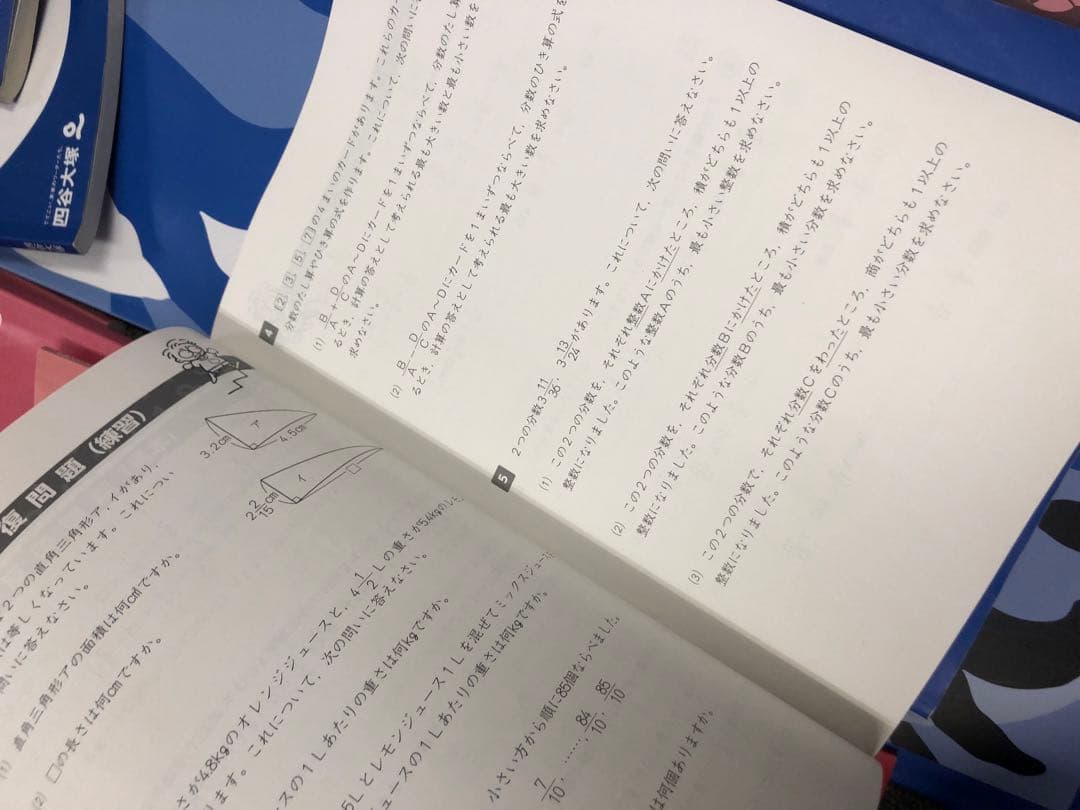 四谷大塚
4 [2], [3], [5], [7]の4まいのカードがあります。これらのカー
分数のたし算やひき算の式を作ります。これについて、次の問いに
(1) B/A+D/CのA〜Dにカードを1まいずつならべて、分数のたし算
るとき、計算の答えとして考えられる最も大きい数と最も小さい数を
求めなさい。
(2) B/A−D/CのA〜Dにカードを1まいずつならべて、分数のひき算の式を
るとき、計算の答えとして考えられる最も大きい数を求めなさい。
5 2つの分数3 11/36, 3 13/24があります。これについて、次の問いに答えなさい。
(1) この2つの分数を、それぞれ整数Aにかけたところ、積がどちらも1以上の
整数になりました。このような整数Aのうち、最も小さい整数を求めなさい。
(2) この2つの分数を、それぞれ分数Bにかけたところ、積がどちらも1以上の
整数になりました。このような分数Bのうち、最も小さい分数を求めなさい。
(3) この2つの分数で、それぞれ分数Cをわったところ、商がどちらも1以上の
整数になりました。このような分数Cのうち、最も小さい分数を求めなさい。
復問題(練習)
2つの直角三角形ア・イがあり、
は等しくなっています。これについ
問いに答えなさい。
(1) 直角三角形アの面積は何cm²ですか。
(2) □の長さは何cmですか。
ア
3.2cm
4.5cm
イ
2 2/15cm
□
さが4.8kgのオレンジジュースと、4 1/2Lの重さが5.4kgのレモ
ます。これについて、次の問いに答えなさい。
スの1Lあたりの重さは何kgですか。
5Lとレモンジュース1Lを混ぜてミックスジュース
ュースの1Lあたりの重さは何kgですか。
小さい方から順に85個ならべました。
7/10, ……, 84/10, 85/10
は何個ありますか。